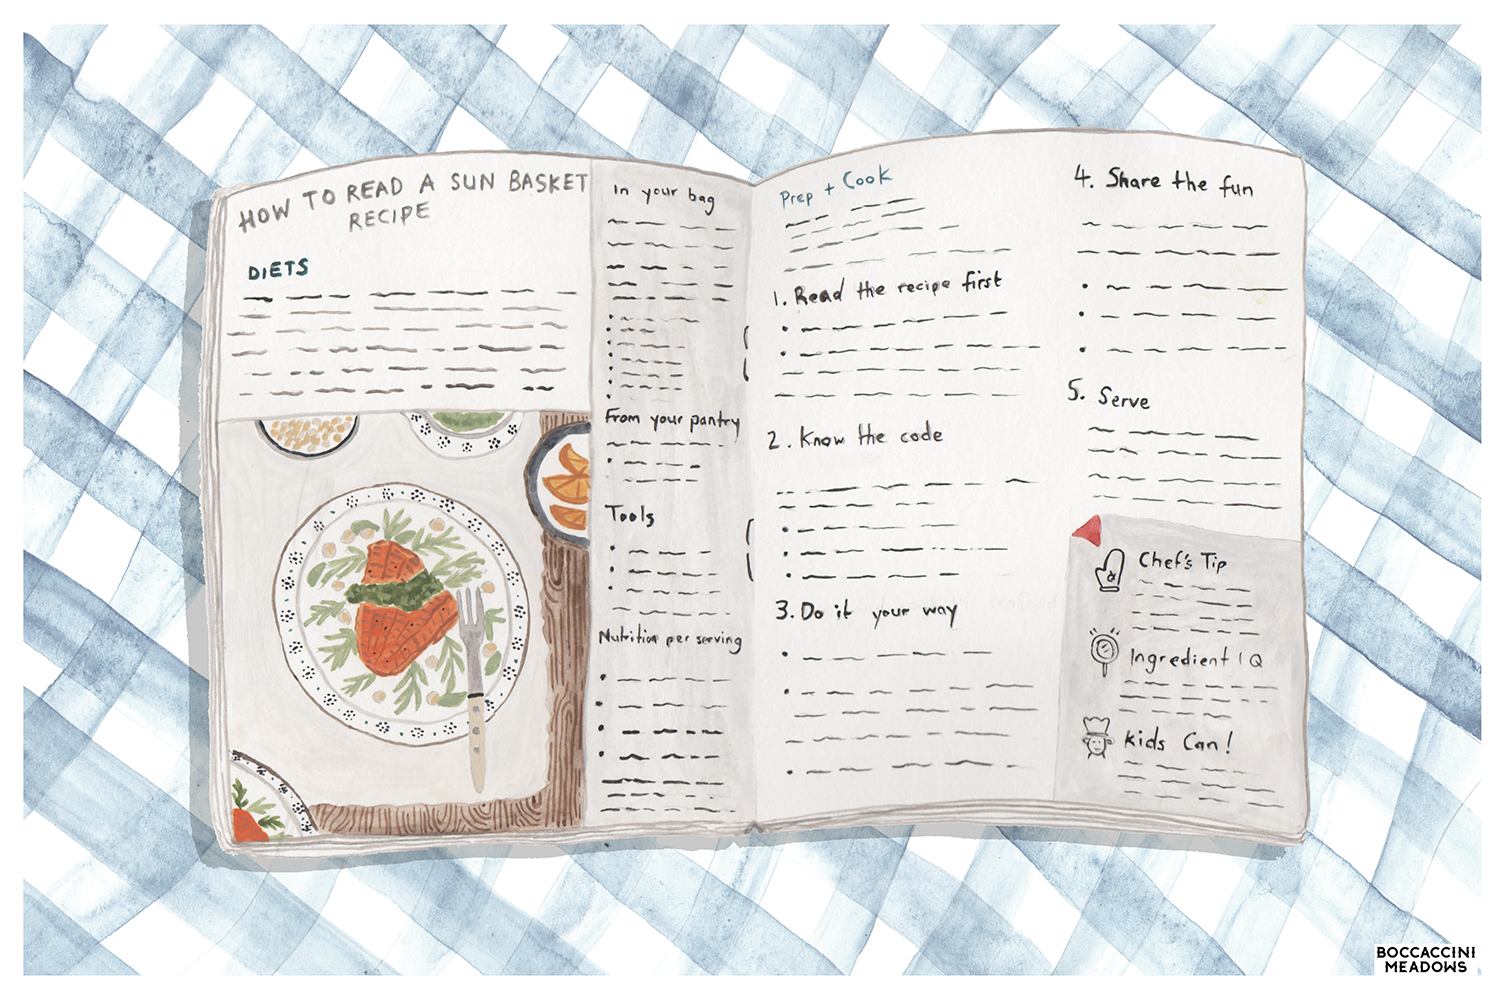 HOW TO READ A SUN BASKET
RECIPE
DIETS
In your bag
From your pantry
Tools
Nutrition per serving
Prep + Cook
1. Read the recipe first
2. Know the code
3. Do it your way
4. Share the fun
5. Serve
Chef's Tip
Ingredient IQ
Kids Can!
BOCCACCINI
MEADOWS